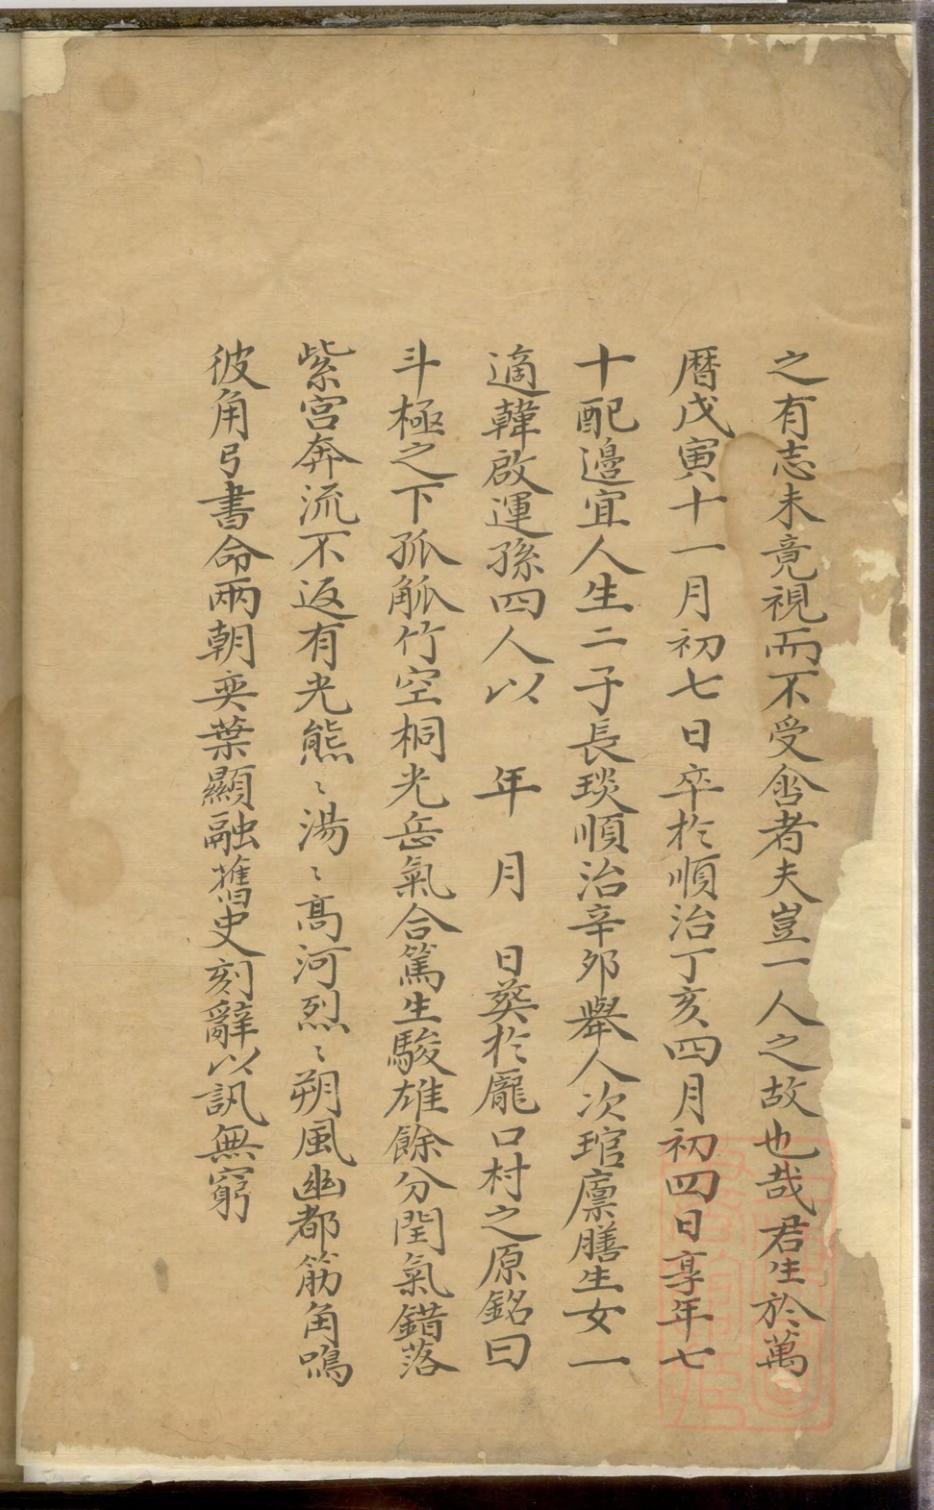 之有志未竟視而不受含者夫豈一人之故也哉君生於萬
曆戊寅十一月初七日卒於順治丁亥四月初四日享年七
十配邊宜人生二子長琰順治辛夘舉人次琯廩膳生女一
適韓啟運孫四人以　年　月　日葵於龐口村之原銘曰
斗極之下孤觚竹空桐光岳氣合篤生駿雄餘分閏氣錯落
紫宫奔流不返有光熊〻湯〻高河烈〻朔風幽都筋角鳴
彼角弓書命兩朝奕葉顯融舊史刻辭以訊無窮